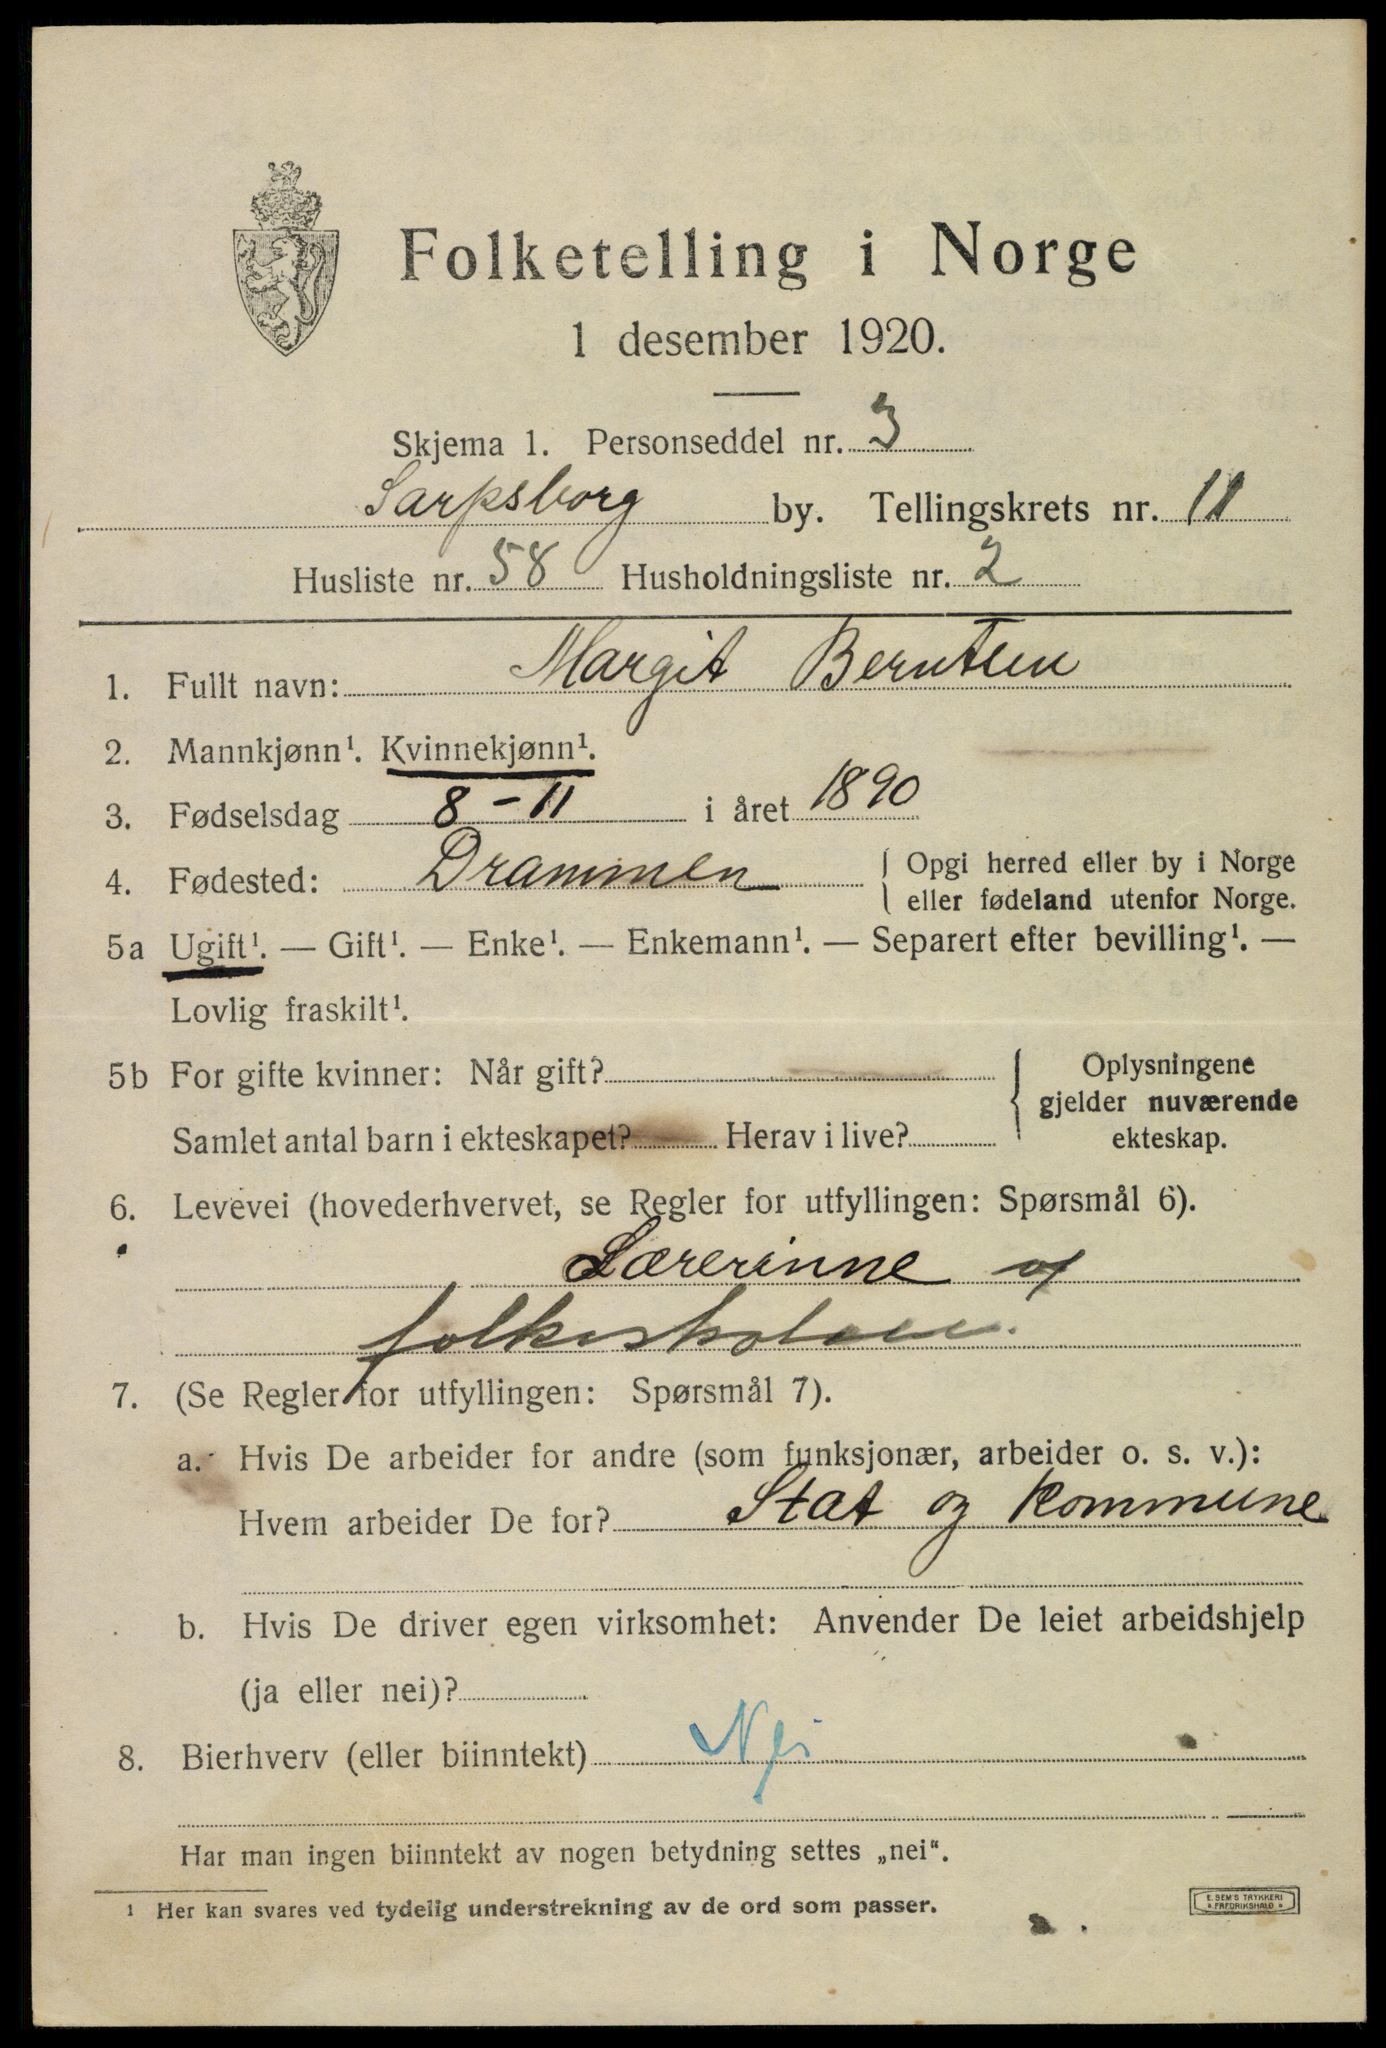 Folketelling i Norge
1 desember 1920.
Skjema 1. Personseddel nr. 3
Sarpsborg by. Tellingskrets nr. 11
Husliste nr. 58 Husholdningsliste nr. 2
1. Fullt navn: Margit Berntsen
2. Mannkjønn¹. Kvinnekjønn¹.
3. Fødselsdag 8-11 i året 1890
4. Fødested: Drammen { Opgi herred eller by i Norge
eller fødeland utenfor Norge.
5a Ugift¹. — Gift¹. — Enke¹. — Enkemann¹. — Separert efter bevilling¹. —
Lovlig fraskilt¹.
5b For gifte kvinner: Når gift?
Samlet antal barn i ekteskapet? Herav i live?
{ Oplysningene
gjelder nuværende
ekteskap.
6. Levevei (hovederhvervet, se Regler for utfyllingen: Spørsmål 6).
Lærerinne
folkeskolen.
7. (Se Regler for utfyllingen: Spørsmål 7).
a. Hvis De arbeider for andre (som funksjonær, arbeider o. s. v.):
Hvem arbeider De for? Stat og kommune
b. Hvis De driver egen virksomhet: Anvender De leiet arbeidshjelp
(ja eller nei)?
8. Bierhverv (eller biinntekt) Nei
Har man ingen biinntekt av nogen betydning settes „nei“.
¹ Her kan svares ved tydelig understrekning av de ord som passer.
E. SEM'S TRYKKERI
FREDRIKSHALD